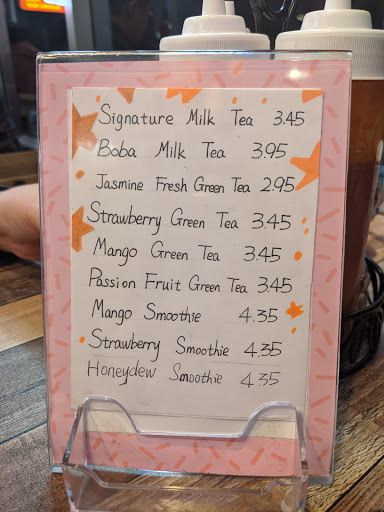 Signature Milk Tea 3.45
Boba Milk Tea 3.95
Jasmine Fresh Green Tea 2.95
Strawberry Green Tea 3.45
Mango Green Tea 3.45
Passion Fruit Green Tea 3.45
Mango Smoothie 4.35
Strawberry Smoothie 4.35
Honeydew Smoothie 4.35